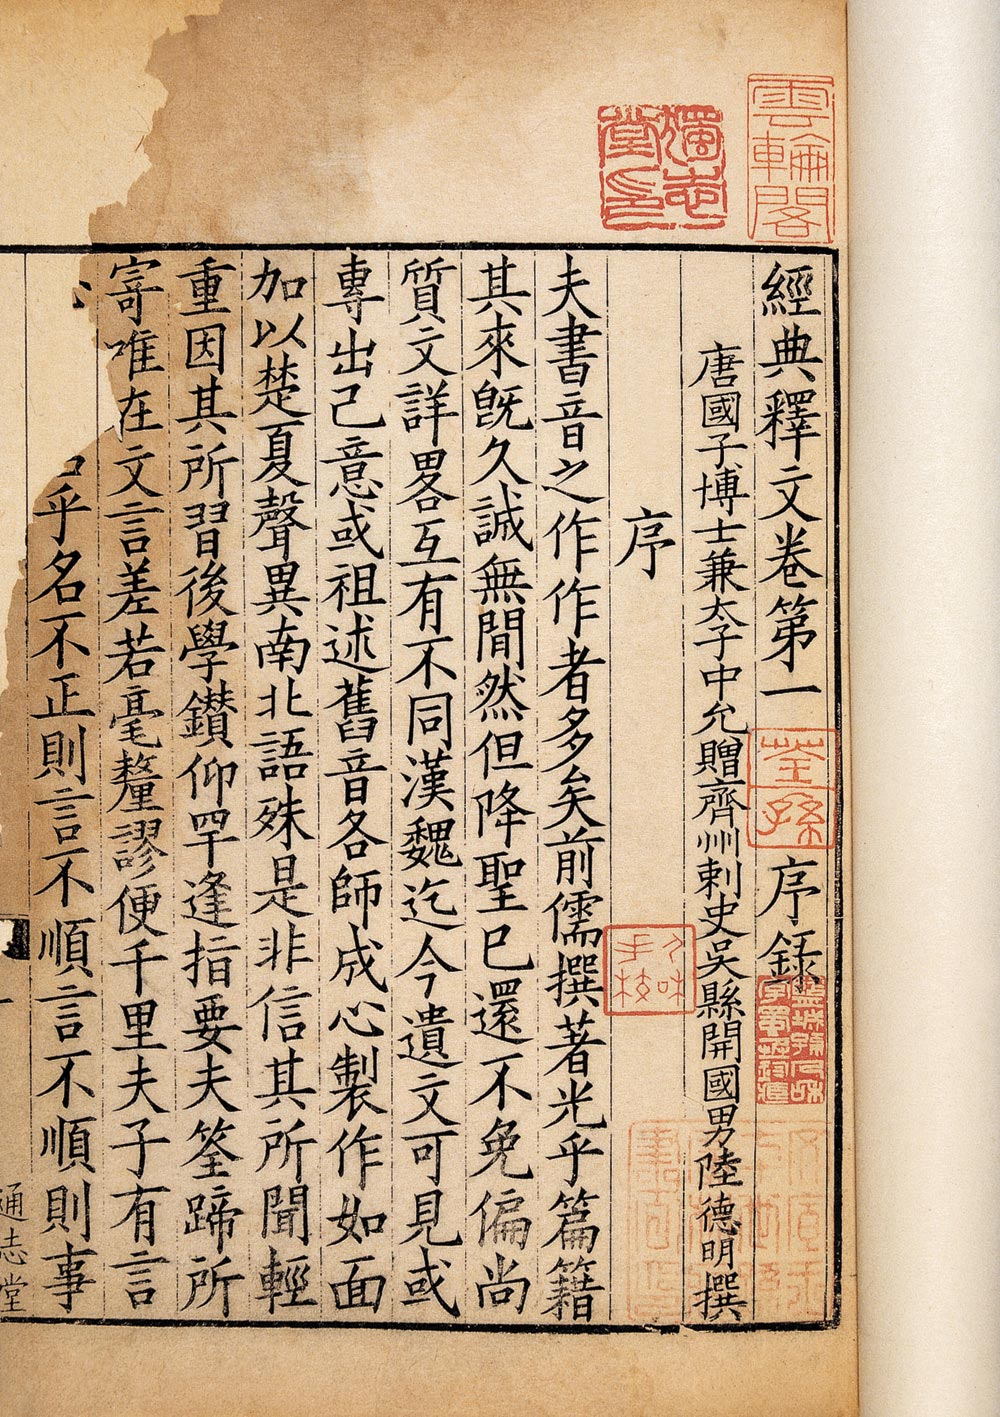 經典釋文卷第一 序録
唐國子博士兼太子中允贈齊州刺史吳縣開國男陸德明撰
序
夫書音之作作者多矣前儒撰著光乎篇籍
其來旣久誠無閒然但降聖已還不免偏尚
質文詳畧互有不同漢魏迄今遺文可見或
專出己意或祖述舊音各師成心製作如面
加以楚夏聲異南北語殊是非信其所聞輕
重因其所習後學鑚仰罕逢指要夫筌蹄所
寄唯在文言差若毫釐謬便千里夫子有言
乎名不正則言不順言不順則事
通志堂
雲輪閣
獨志堂印
荃孫